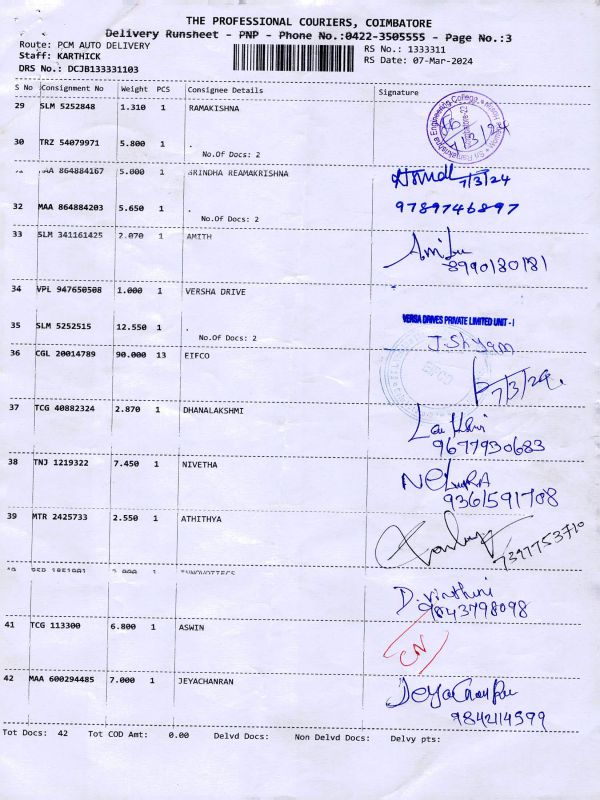 THE PROFESSIONAL COURIERS, COIMBATORE
Delivery Runsheet - PNP - Phone No.:0422-3505555 - Page No.:3
Route: PCM AUTO DELIVERY RS No.: 1333311
Staff: KARTHICK RS Date: 07-Mar-2024
DRS No.: DCJB133331103
S No Consignment No Weight PCS Consignee Details Signature
29 SLM 5252848 1.310 1 RAMAKISHNA
30 TRZ 54079971 5.800 1 .
7/3/24
No.Of Docs: 2
864884167 5.000 1 BRINDHA REAMAKRISHNA 7/3/24
32 MAA 864884203 5.650 1 . 9789746897
No.Of Docs: 2
33 SLM 341161425 2.070 1 AMITH
8990180181
34 VPL 947650508 1.000 1 VERSHA DRIVE
VERSA DRIVES PRIVATE LIMITED UNIT - I
35 SLM 5252515 12.550 1 .
No.Of Docs: 2 J. Shyam
36 CGL 20014789 90.000 13 EIFCO
7/3/24.
37 TCG 40882324 2.870 1 DHANALAKSHMI
9677930683
38 TNJ 1219322 7.450 1 NIVETHA
9361591708
39 MTR 2425733 2.550 1 ATHITHYA
7397753710
D. Vinthini
9843798098
41 TCG 113300 6.800 1 ASWIN
CN
42 MAA 600294485 7.000 1 JEYACHANRAN
9842114599
Tot Docs: 42 Tot COD Amt: 0.00 Delvd Docs: Non Delvd Docs: Delvy pts: